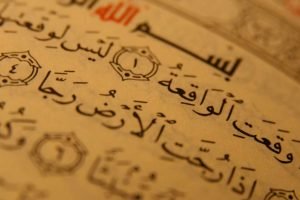 بِسْمِ اللَّهِ
وَقَعَتِ الْوَاقِعَةُ ١ لَيْسَ لِوَقْعَتِهَا
إِذَا رُجَّتِ الْأَرْضُ رَجًّا ٤
٦